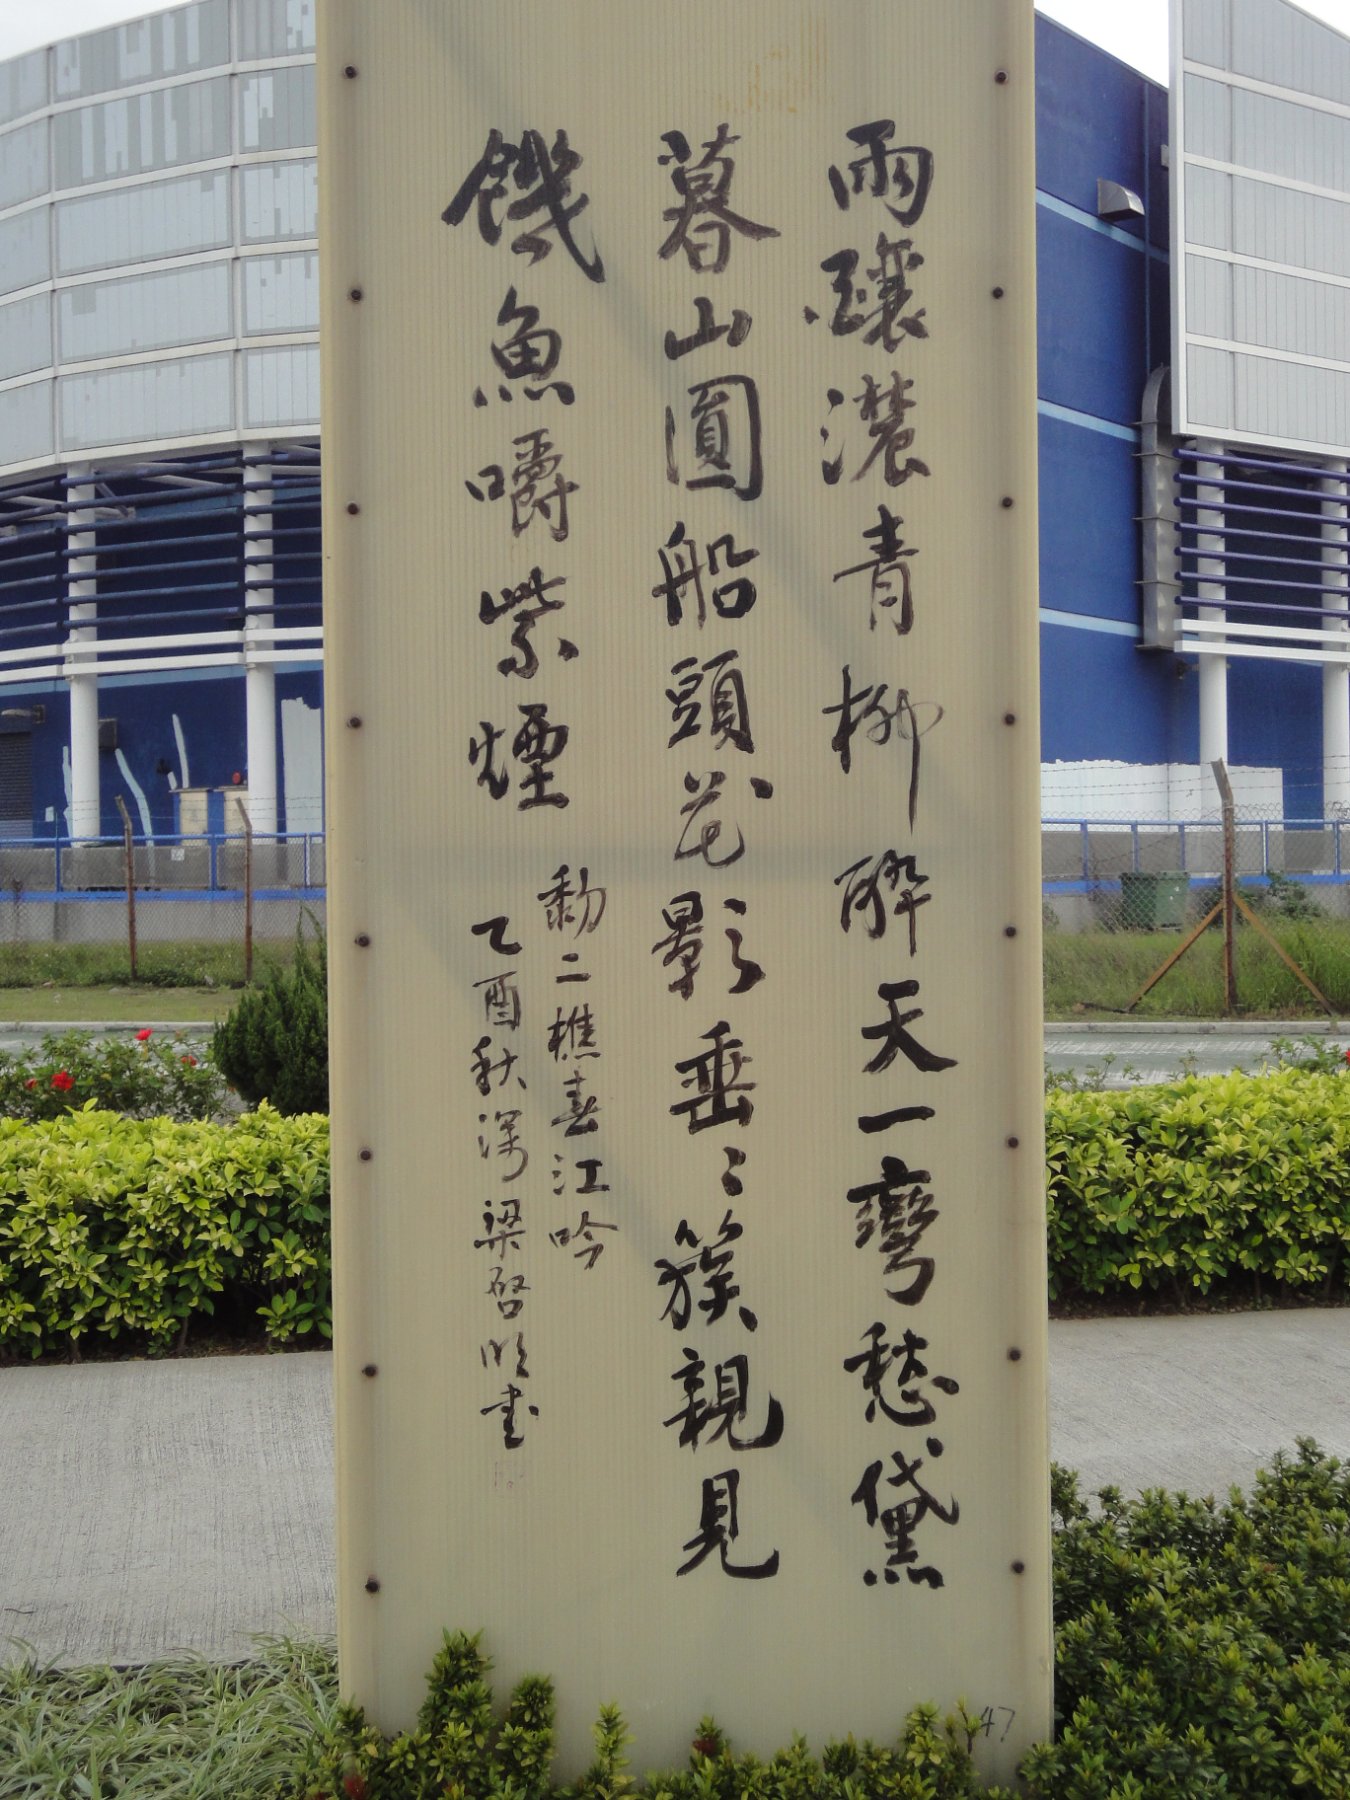 雨釀濃青柳醉天一彎愁黛
暮山圓船頭花影垂〻簇親見
饑魚嚼紫煙
黎二樵春江吟
乙酉秋深梁啟明書
47